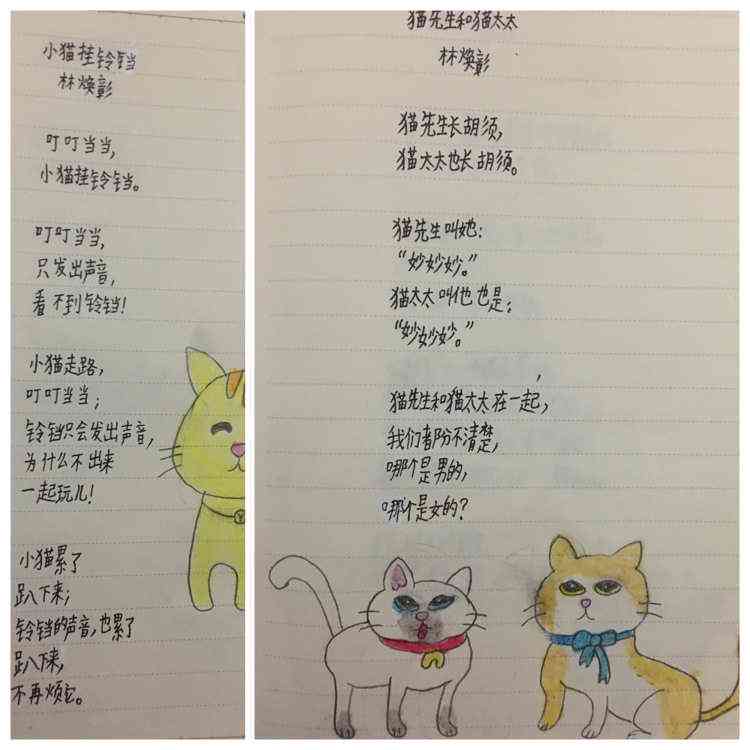 小猫挂铃铛
林焕彰
叮叮当当,
小猫挂铃铛。
叮叮当当,
只发出声音,
看不到铃铛!
小猫走路,
叮叮当当;
铃铛只会发出声音,
为什么不出来
一起玩儿!
小猫累了
趴下来;
铃铛的声音,也累了
趴下来,
不再烦它。
猫先生和猫太太
林焕彰
猫先生长胡须,
猫太太也长胡须。
猫先生叫她:
“妙妙妙。”
猫太太叫他也是:
“妙妙妙。”
猫先生和猫太太在一起,
我们都分不清楚,
哪个是男的,
哪个是女的?